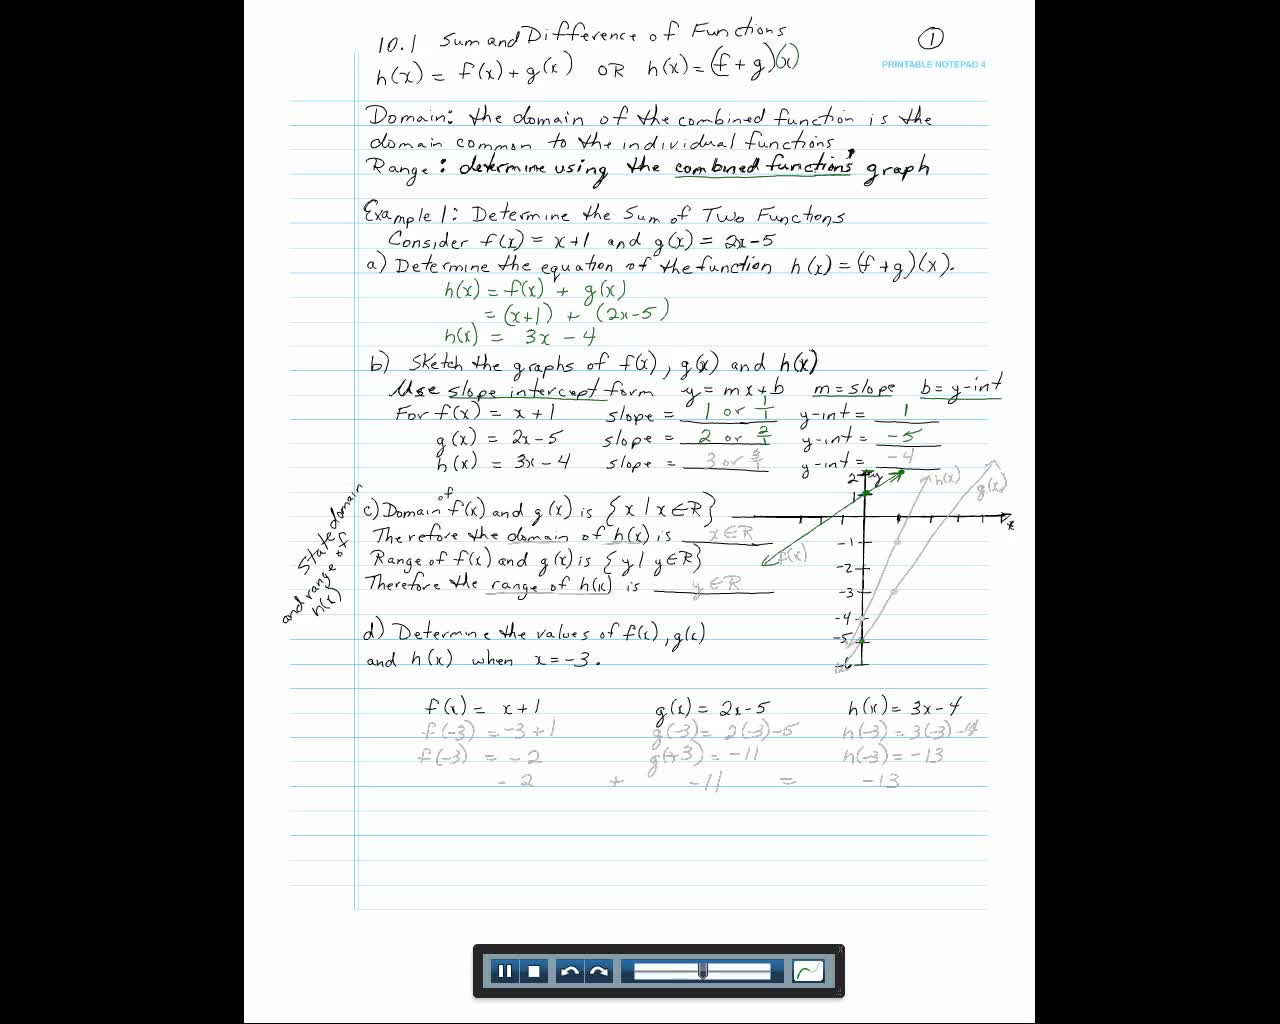 10.1 Sum and Difference of Functions
1
PRINTABLE NOTEPAD 4
h(x) = f(x) + g(x) OR h(x) = (f + g)(x)
Domain: the domain of the combined function is the
domain common to the individual functions
Range: determine using the combined function's graph
Example 1: Determine the Sum of Two Functions
Consider f(x) = x+1 and g(x) = 2x-5
a) Determine the equation of the function h(x) = (f + g)(x).
h(x) = f(x) + g(x)
= (x+1) + (2x-5)
h(x) = 3x - 4
b) Sketch the graphs of f(x), g(x) and h(x)
Use slope intercept form y = mx + b m = slope b = y-int
For f(x) = x + 1 slope = 1 or 1/1 y-int = 1
g(x) = 2x - 5 slope = 2 or 2/1 y-int = -5
h(x) = 3x - 4 slope = 3 or 3/1 y-int = -4
State domain
and range of
h(x)
c) Domain of f(x) and g(x) is {x | x∈R}
Therefore the domain of h(x) is x∈R
Range of f(x) and g(x) is {y | y∈R}
Therefore the range of h(x) is y∈R
y
h(x)
g(x)
f(x)
x
2
1
-1
-2
-3
-4
-5
-6
d) Determine the values of f(x), g(x)
and h(x) when x = -3.
f(x) = x + 1 g(x) = 2x - 5 h(x) = 3x - 4
f(-3) = -3 + 1 g(-3) = 2(-3) - 5 h(-3) = 3(-3) - 4
f(-3) = -2 g(-3) = -11 h(-3) = -13
-2 + -11 = -13